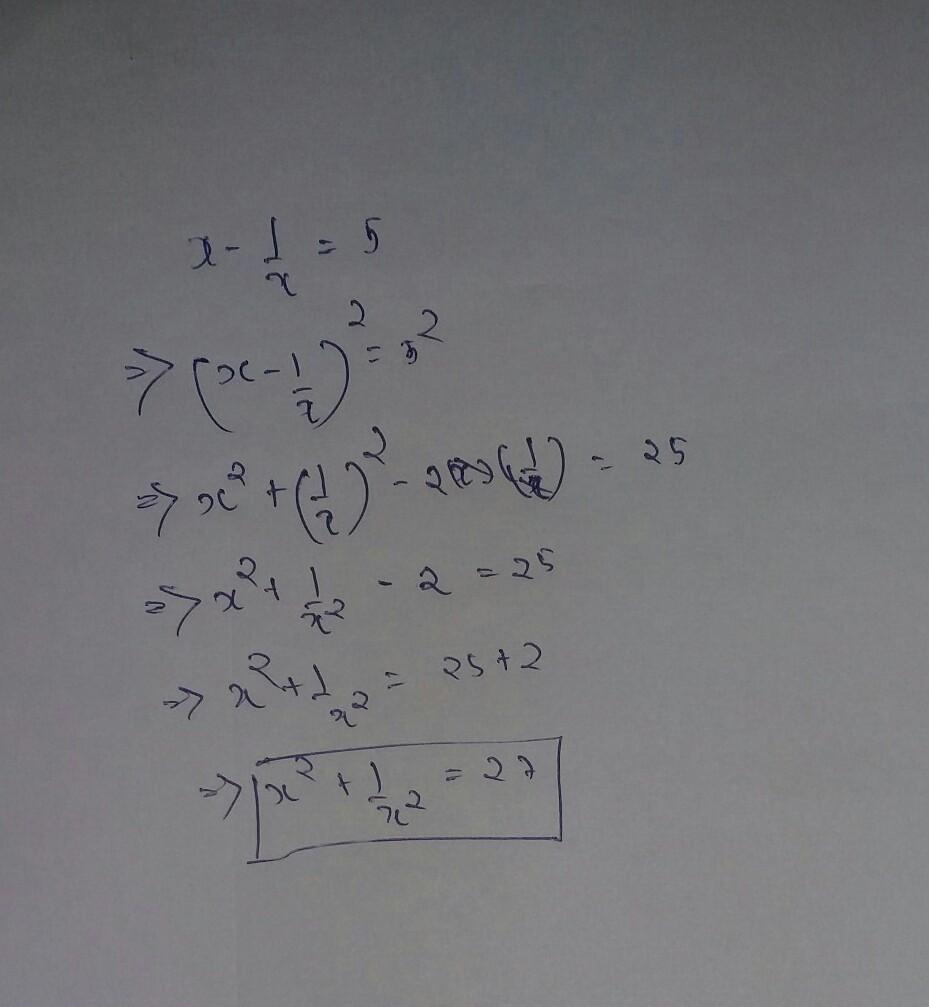 x - 1/x = 5
⇒ (x - 1/x)² = 5²
⇒ x² + (1/x)² - 2(x)(1/x) = 25
⇒ x² + 1/x² - 2 = 25
⇒ x² + 1/x² = 25 + 2
⇒ x² + 1/x² = 27